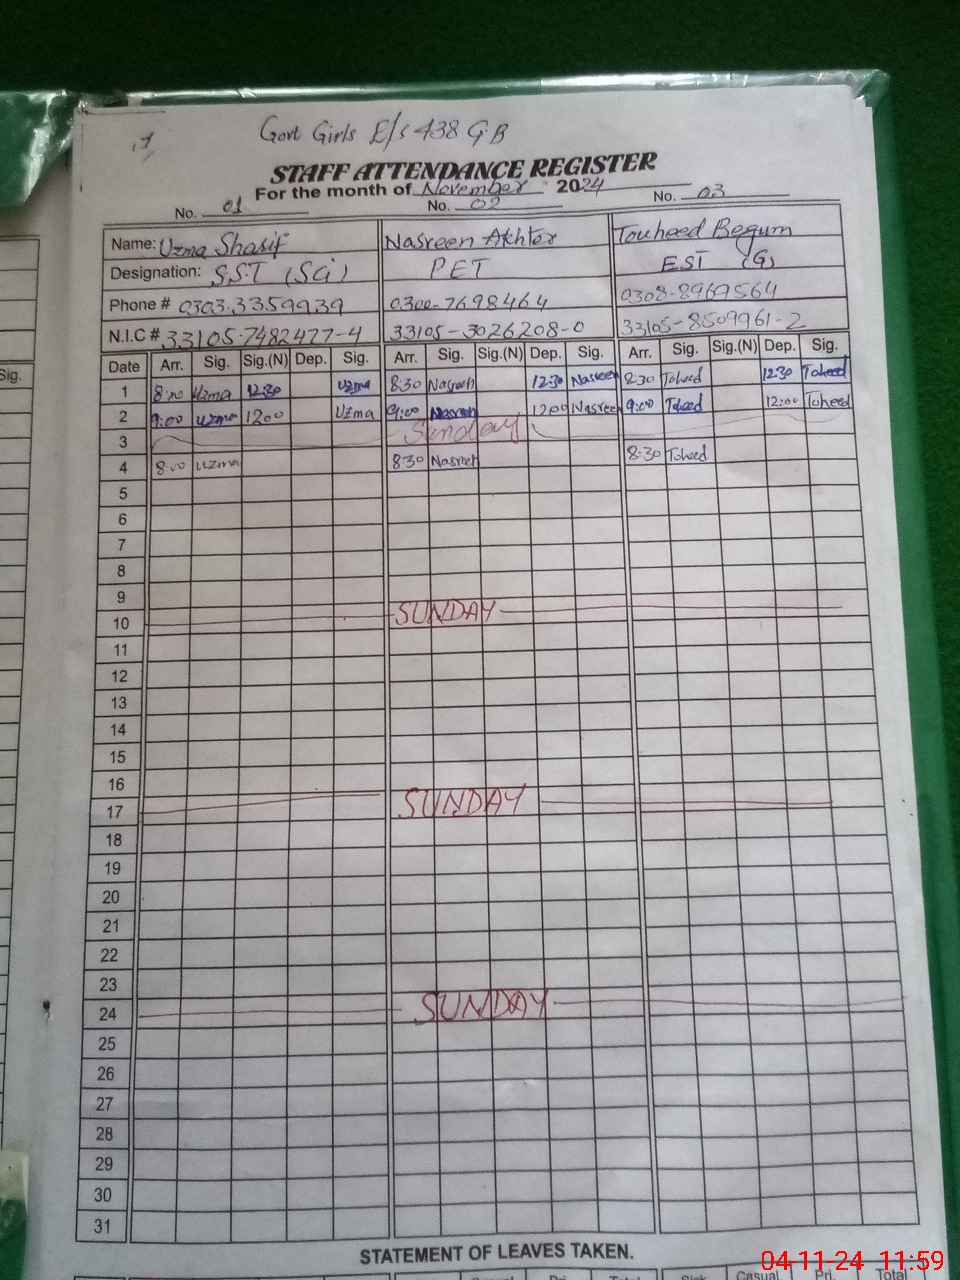 Govt Girls E/s 438 G.B
STAFF ATTENDANCE REGISTER
For the month of November 2024
No. 01 No. 02 No. 03
Name: Uzma Sharif Nasreen Akhter Touheed Begum
Designation: S.S.T (Sci) PET EST (G)
Phone # 0303.3359939 0300-7698464 0308-8969564
N.I.C # 33105-7482477-4 33105-3026208-0 33105-8509961-2
Date Arr. Sig. Sig.(N) Dep. Sig. Arr. Sig. Sig.(N) Dep. Sig. Arr. Sig. Sig.(N) Dep. Sig.
1 8:00 Uzma 12:30 Uzma 8:30 Nasreen 12:30 Nasreen 8:30 Toheed 12:30 Toheed
2 9:00 Uzma 12:00 Uzma 9:00 Nasreen 12:00 Nasreen 9:00 Toheed 12:00 Toheed
3 Sunday
4 8:00 Uzma 8:30 Nasreen 8:30 Toheed
5
6
7
8
9
10 SUNDAY
11
12
13
14
15
16
17 SUNDAY
18
19
20
21
22
23
24 SUNDAY
25
26
27
28
29
30
31
STATEMENT OF LEAVES TAKEN.
Casual Pri. Total
Sig.
04-11-24 11:59